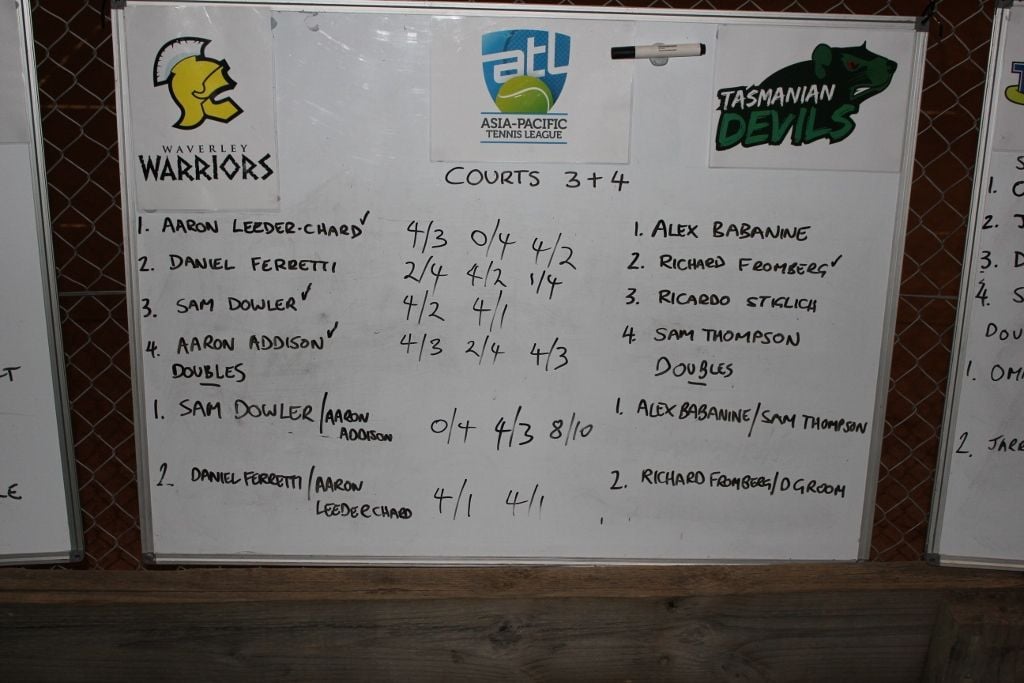 WAVERLEY
WARRIORS
atl
ASIA-PACIFIC
TENNIS LEAGUE
TASMANIAN
DEVILS
COURTS 3+4
1. AARON LEEDER-CHARD✓ 4/3 0/4 4/2 1. ALEX BABANINE
2. DANIEL FERRETTI 2/4 4/2 1/4 2. RICHARD FROMBERG✓
3. SAM DOWLER✓ 4/2 4/1 3. RICARDO STIGLICH
4. AARON ADDISON✓ 4/3 2/4 4/3 4 SAM THOMPSON
DOUBLES DOUBLES
1. SAM DOWLER/AARON ADDISON 0/4 4/3 8/10 1. ALEX BABANINE/SAM THOMPSON
2. DANIEL FERRETTI/AARON LEEDERCHARD 4/1 4/1 2. RICHARD FROMBERG/D GROOM
T
LE
S
1.
2. J
3. D
4. S
DOU
1. OM
2. JARR